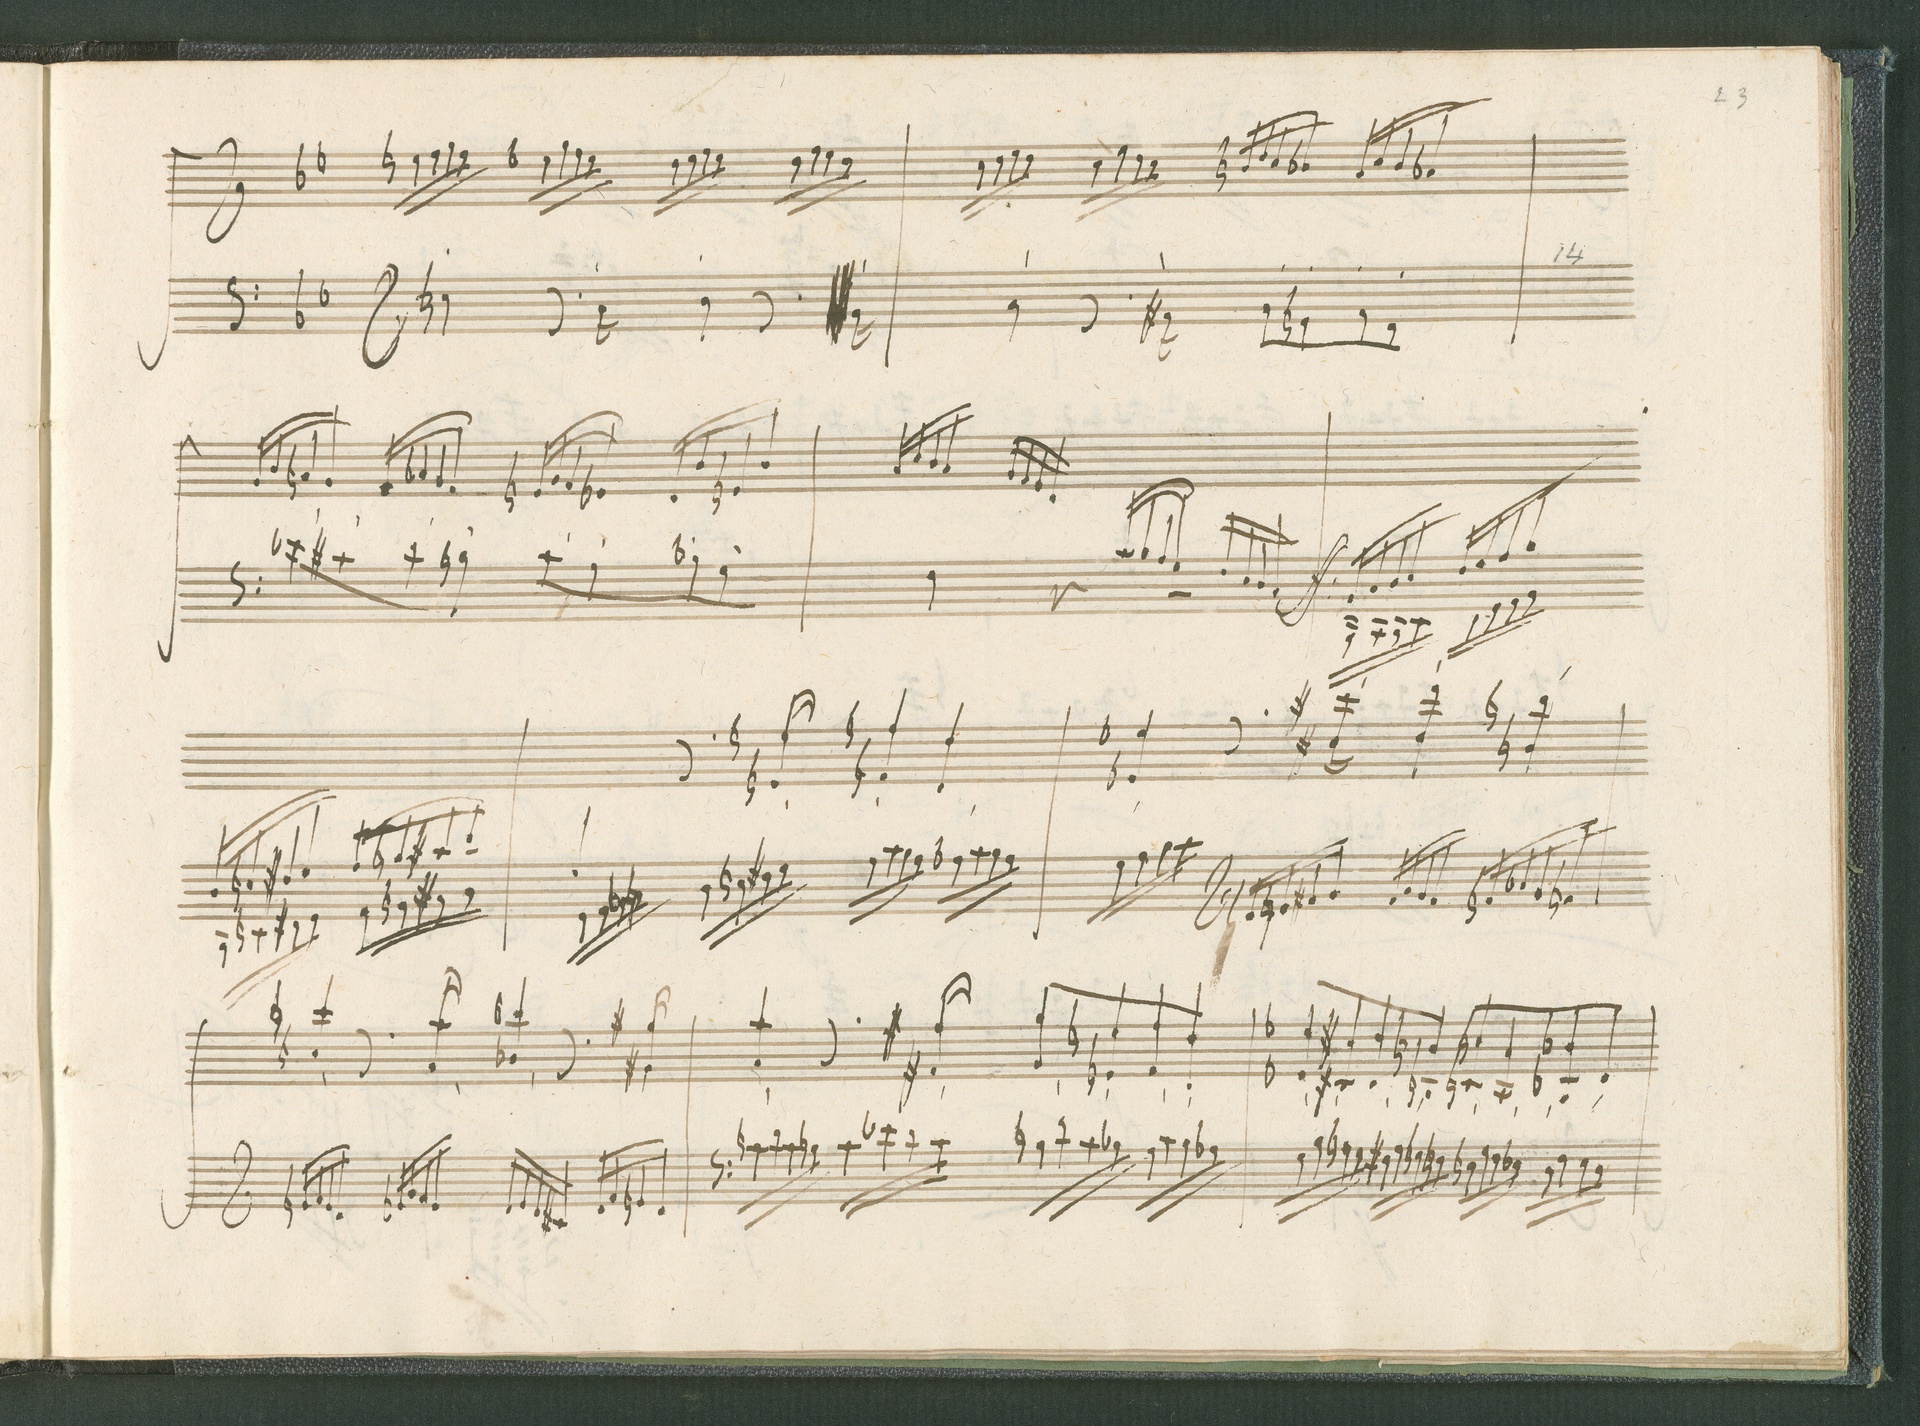 23
14